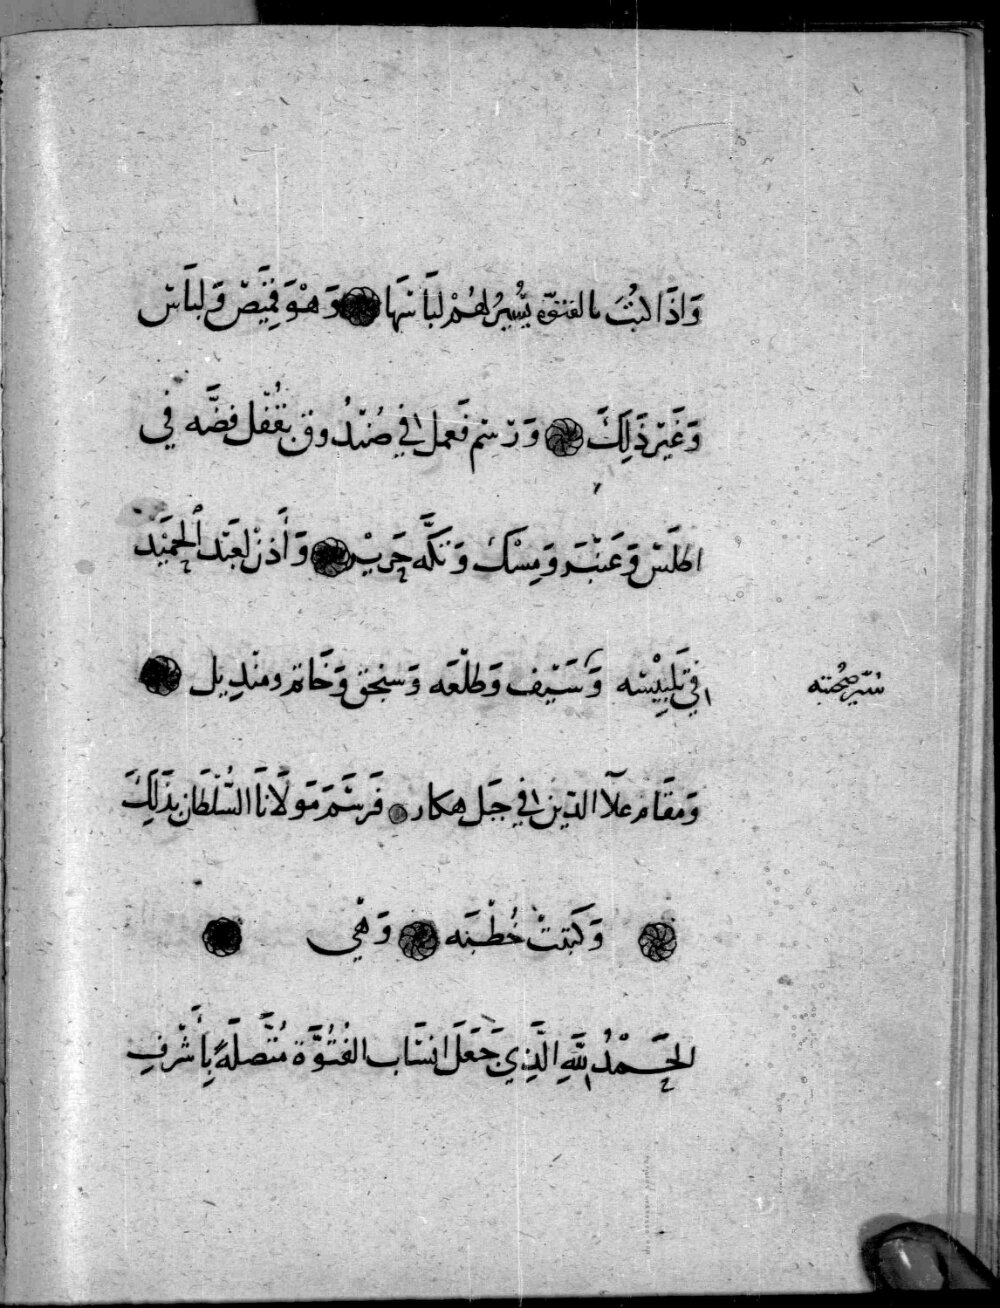 وَاذَا كتبْتَ بالفتوّة يُسيرُ لهُمْ لبَاسَهَا وَهْوَ قمَيَصْ وَلبَاسْ
وَغَيرْ ذَلِكَ وَرَسِم فَعمل في صُنْدُوق بقُفْل فضَّه في
اطلَسْ وَعَنْبَر وَمِسْك وَتكَّه حَرِيْر وَأَذِنْ لعَبْد الحمَيْد
في تَلبِيْسه وَسَيْف وَطلْعَه وَسنجق وَخَاتم ومنْدِيل
سيّر صحُبته
وَمقَام علآ الدّين في جبَل هكار فَرسَّمَ مَولَانَا السُّلْطَان بذَلِكَ
وَكَتبَتْ خُطْبَه وَهْي
الحَمْدُ للَّهِ الَّذِي جَعَلَ انسَاب الفُتُوَّة مُتَّصلَةً بِأَشْرفِ